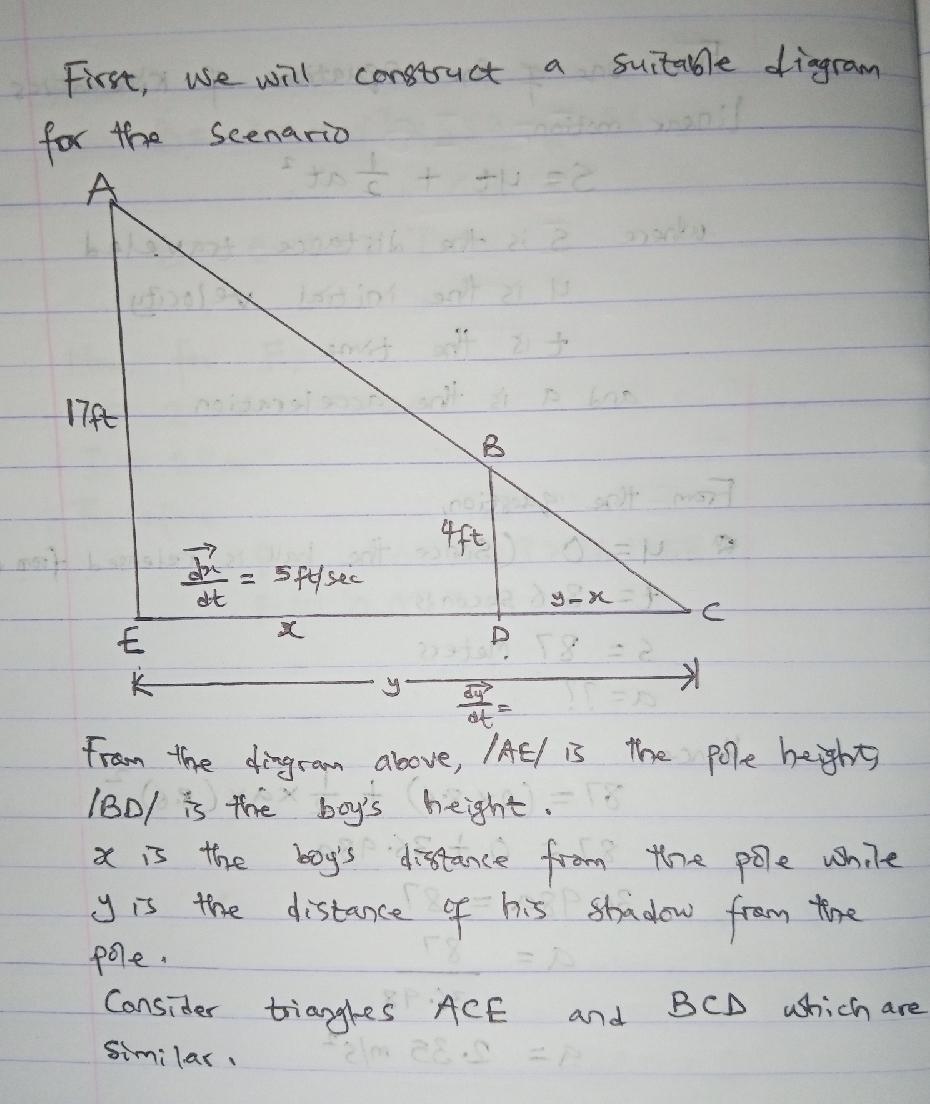 First, we will construct a suitable diagram
for the scenario
A
17ft
B
4ft
dx/dt = 5ft/sec
y-x
C
E
x
D
y
dy/dt =
From the diagram above, /AE/ is the pole height,
/BD/ is the boy's height.
x is the boy's distance from the pole while
y is the distance of his shadow from the
pole.
Consider triangles ACE and BCD which are
similar.